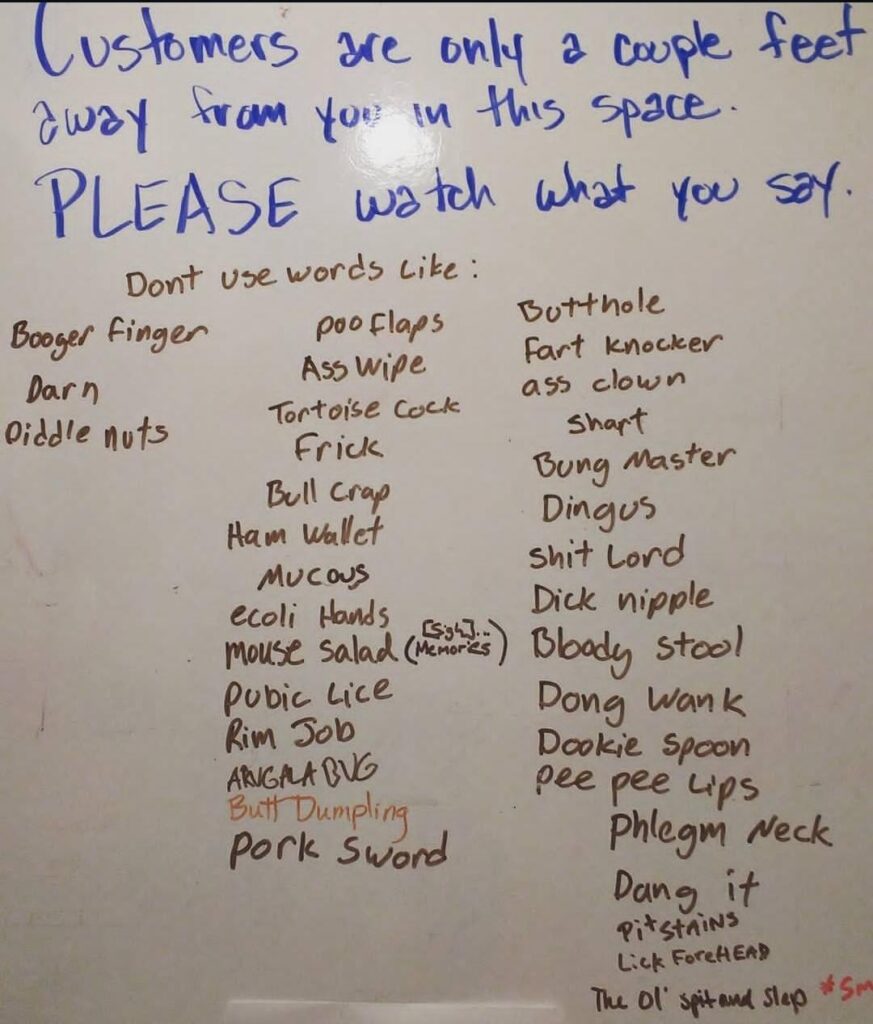 Customers are only a couple feet
away from you in this space.
PLEASE watch what you say.
Dont use words like:
Booger finger
Darn
Diddle nuts
poo flaps
Ass wipe
Tortoise Cock
Frick
Bull Crap
Ham Wallet
Mucous
ecoli Hands
mouse salad ([sigh]... Memories)
pubic Lice
Rim Job
ARUGALA BUG
Butt Dumpling
Pork Sword
Butthole
Fart Knocker
ass clown
shart
Bung Master
Dingus
shit Lord
Dick nipple
Bloody stool
Dong Wank
Dookie Spoon
pee pee Lips
Phlegm Neck
Dang it
PitSTAINS
Lick ForeHEAD
The Ol' spit and slap